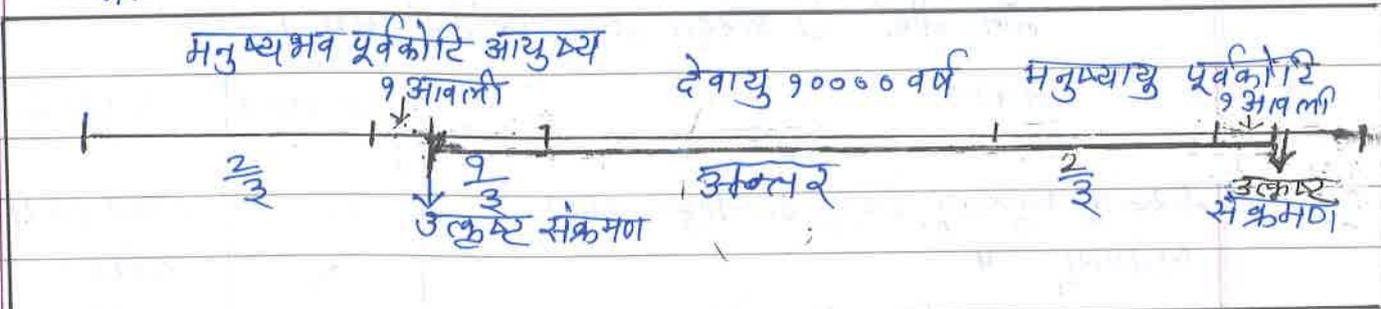 मनुष्यभव पूर्वकोटि आयुष्य
१ आवली
देवायु १०००० वर्ष
मनुष्यायु पूर्वकोटि
१ आवली
२/३
१/३
अन्तर
२/३
उत्कृष्ट संक्रमण
उत्कृष्ट
संक्रमण